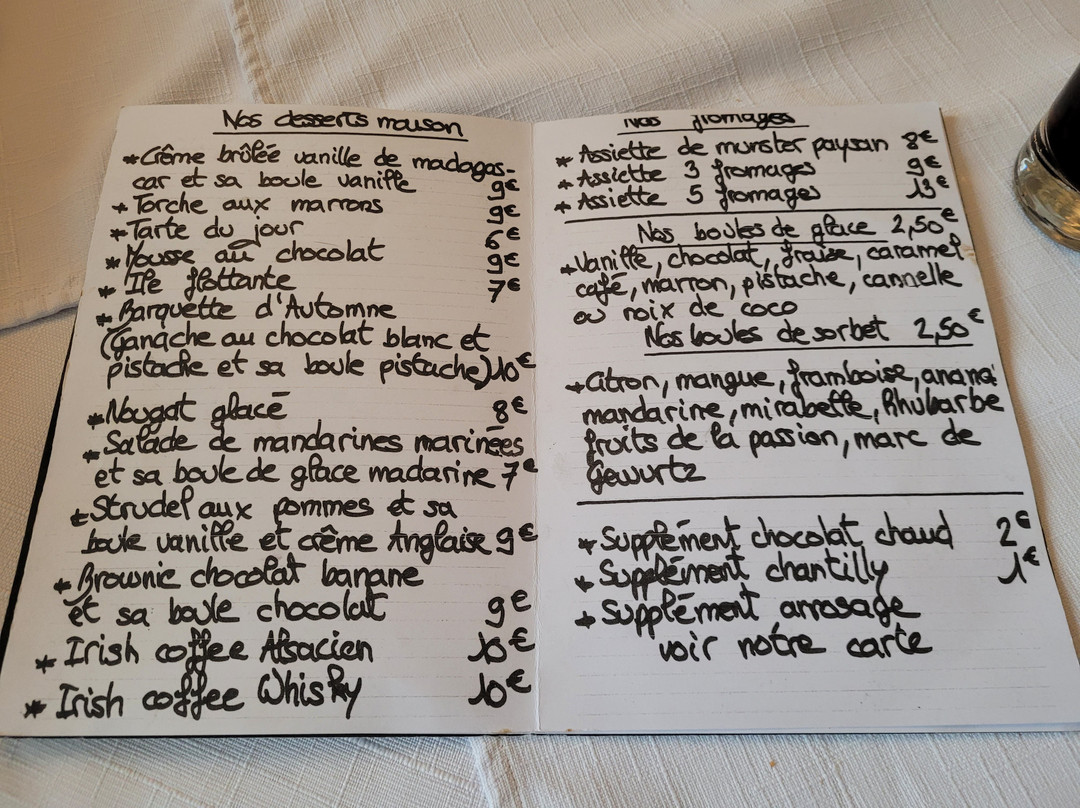 Nos desserts maison
* Crême brûlée vanille de madagas-
car et sa boule vanille 9€
* Torche aux marrons 9€
* Tarte du jour 6€
* Mousse au chocolat 9€
* Ile flottante 7€
* Barquette d'Automne
(Ganache au chocolat blanc et
pistache et sa boule pistache) 10€
* Nougat glacé 8€
* Salade de mandarines marinées
et sa boule de glace madarine 7€
* Strudel aux pommes et sa
boule vanille et crême Anglaise 9€
* Brownie chocolat banane
et sa boule chocolat 9€
* Irish coffee Alsacien 10€
* Irish coffee Whisky 10€
Nos fromages
* Assiette de munster paysan 8€
* Assiette 3 fromages 9€
* Assiette 5 fromages 13€
Nos boules de glace 2,50€
* Vanille, chocolat, fraise, caramel
café, marron, pistache, cannelle
ou noix de coco
Nos boules de sorbet 2,50€
* Citron, mangue, framboise, anana
mandarine, mirabelle, Rhubarbe
fruits de la passion, marc de
Gewurtz
* Supplément chocolat chaud 2€
* Supplément chantilly 1€
* Supplément arrosage
voir notre carte